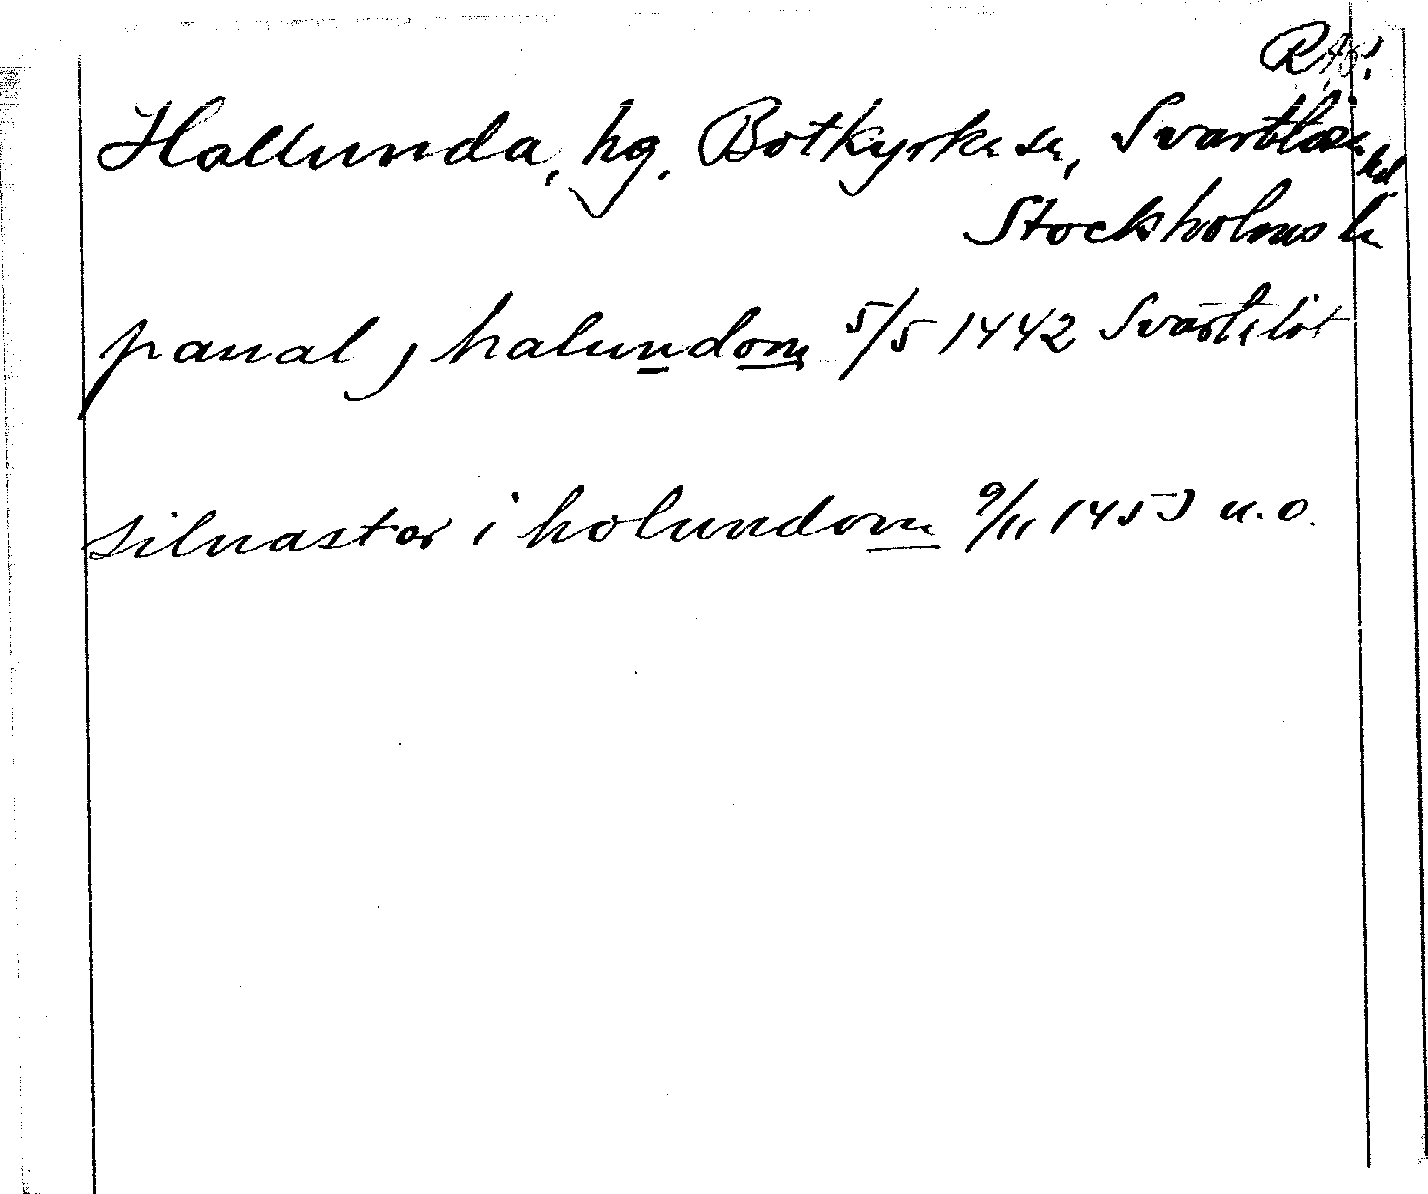 RAP.
Hallunda, hg. Botkyrka sn, Svartlösa hd.
Stockholms l.
panal j halundom 5/5 1442 Svartelöt
silnastar i holundom 9/11 1453 u.o.